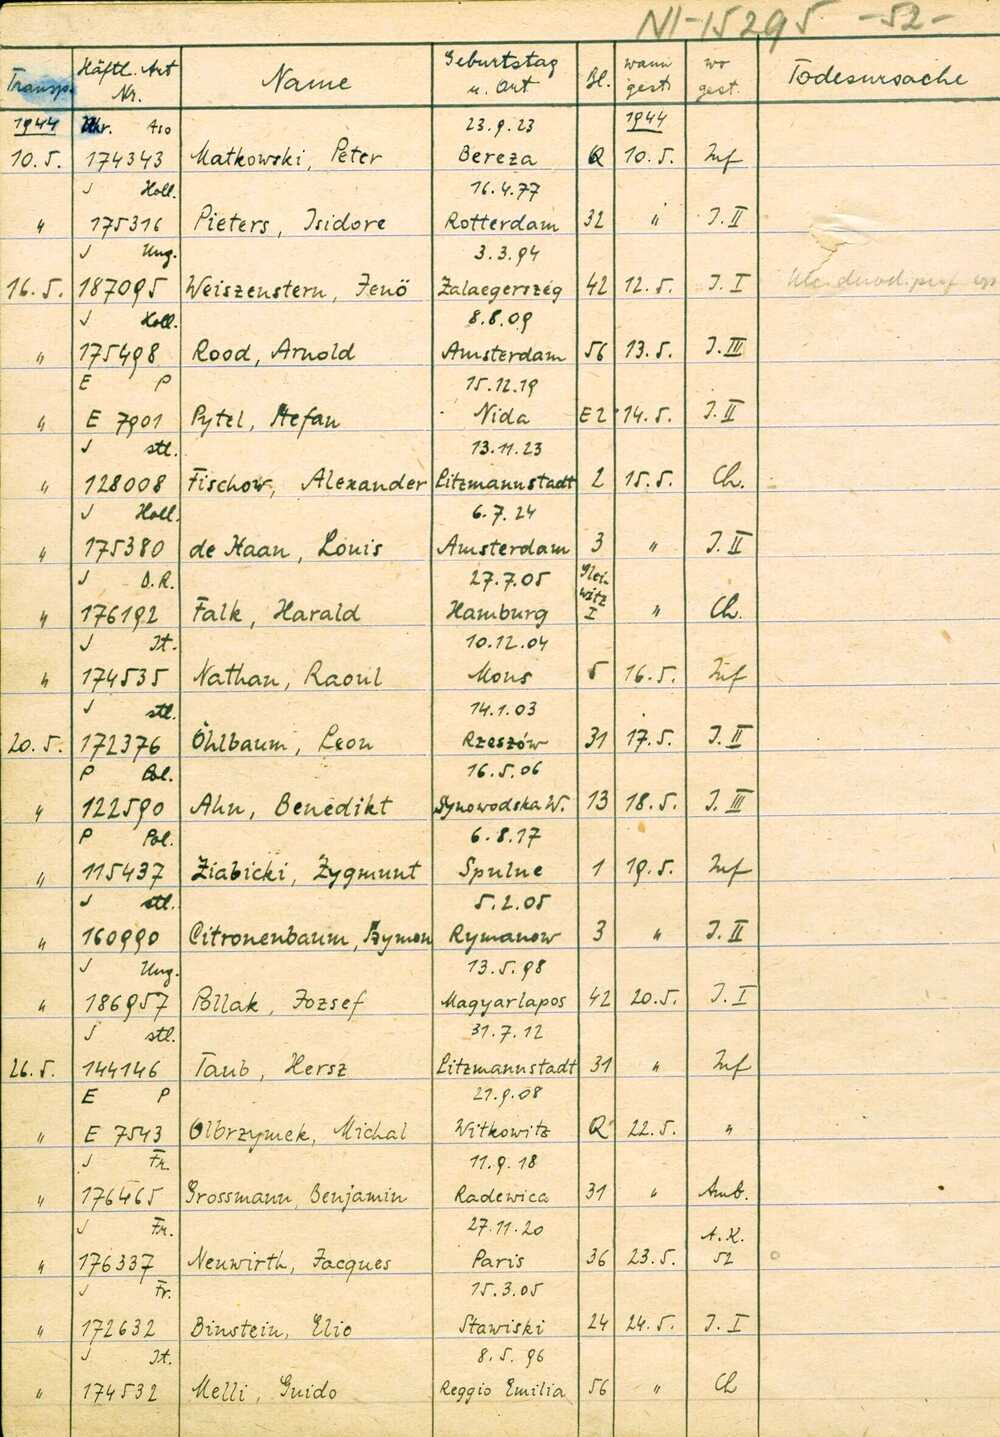 NI-15295 -52-
Transp. Häftl. Art Nr. Name Geburtstag u. Ort Bl. wann gest. wo gest. Todesursache
1944 Ukr. Aso 23.9.23 1944
10.5. 174343 Matkowski, Peter Bereza Q 10.5. Inf
J Holl. 16.4.77
" 175316 Pieters, Isidore Rotterdam 32 " I.II
J Ung. 3.3.94
16.5. 187095 Weiszenstern, Jenö Zalaegerszeg 42 12.5. I.I
J Holl. 8.8.09
" 175498 Rood, Arnold Amsterdam 56 13.5. I.III
E P 15.12.19
" E 7901 Pytel, Stefan Nida E2 14.5. I.II
J stl. 13.11.23
" 128008 Fischow, Alexander Litzmannstadt 2 15.5. Ch.
J Holl. 6.7.24
" 175380 de Haan, Louis Amsterdam 3 " I.II
J D.R. 27.7.05
" 176192 Falk, Harald Hamburg Gleiwitz I " Ch.
J It. 10.12.04
" 174535 Nathan, Raoul Mons 5 16.5. Inf
J stl. 14.1.03
20.5. 172376 Öhlbaum, Leon Rzeszów 31 17.5. I.II
P Pol. 16.5.06
" 122590 Ahn, Benedikt Synowodska W. 13 18.5. I.III
P Pol. 6.8.17
" 115437 Ziabicki, Zygmunt Spulne 1 19.5. Inf
J stl. 5.2.05
" 160990 Citronenbaum, Szymon Rymanow 3 " I.II
J Ung. 13.5.98
" 186957 Pollak, Jozsef Magyarlapos 42 20.5. I.I
J stl. 31.7.12
26.5. 144146 Taub, Hersz Litzmannstadt 31 " Inf
E P 21.9.08
" E 7543 Olbrzymek, Michal Witkowitz Q 22.5. "
J Fr. 11.9.18
" 176465 Grossmann, Benjamin Radewica 31 " Amb.
J Fr. 27.11.20 A.K.
" 176337 Neuwirth, Jacques Paris 36 23.5. 52
J Fr. 15.3.05
" 172632 Binstein, Elio Stawiski 24 24.5. I.I
J It. 8.5.96
" 174532 Melli, Guido Reggio Emilia 56 " Ch